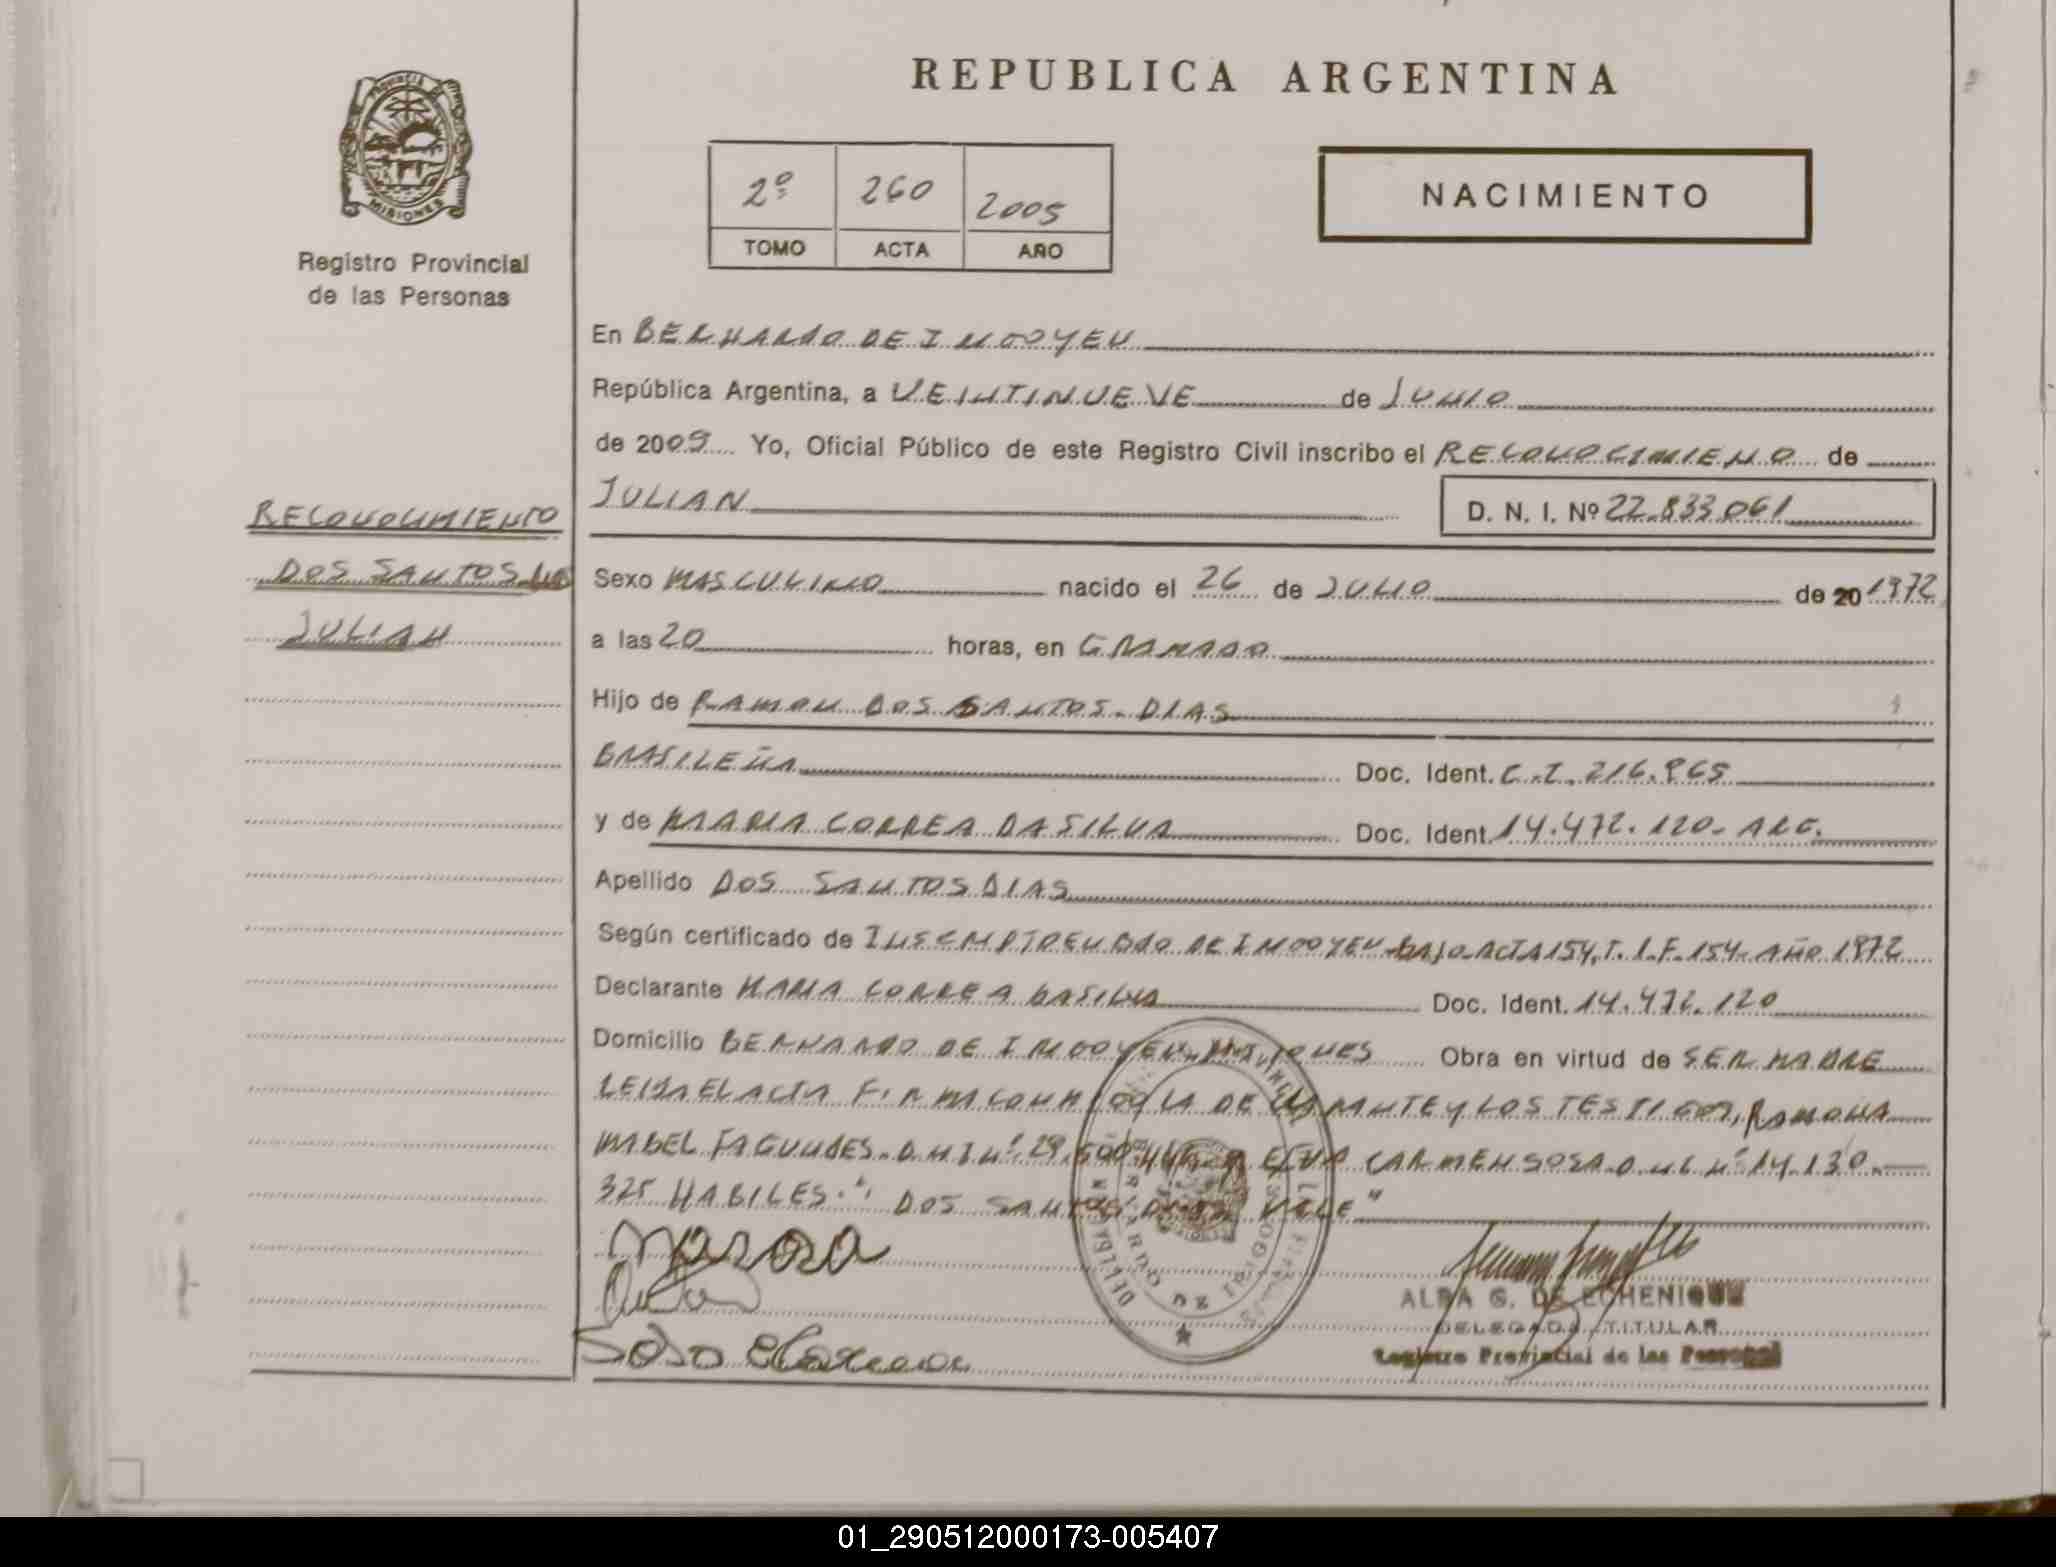 REPUBLICA ARGENTINA
PROVINCIA DE
MISIONES
Registro Provincial
de las Personas
2º 260 2005
TOMO ACTA AÑO
NACIMIENTO
En BERNARDO DE IRIGOYEN
República Argentina, a VEINTINUEVE de JUNIO
de 2005 Yo, Oficial Público de este Registro Civil inscribo el RECONOCIMIENO de
JULIAN D. N. I. Nº 22.833.061
RECONOCIMIENTO
DOS SANTOS
JULIAN
Sexo MASCULINO nacido el 26 de JULIO de 20 1972
a las 20 horas, en GRAMADO
Hijo de RAMON DOS SANTOS DIAS
BRASILEÑA Doc. Ident. C.I. 216.965
y de MARIA CORREA DA SILVA Doc. Ident. 14.472.120- ARG.
Apellido DOS SANTOS DIAS
Según certificado de INSCRIPTO EN BDO DE IRIGOYEN BAJO ACTA 154, T. 1. F. 154- AÑO 1972
Declarante MARIA CORREA DASILVA Doc. Ident. 14.472.120
Domicilio BERNARDO DE IRIGOYEN MISIONES Obra en virtud de SER MADRE
LEIDA EL ACTA FIRMA CONMIGO LA DECLARANTE Y LOS TESTIGOS, RAMONA
MABEL FAGUNDES. D N I Nº 29.500. ELVA CARMEN SOSA D N I Nº 14.130.
325 HABILES. "DOS SANTOS VALE"
Sosa
ALBA G. DE ECHENIQUE
DELEGADA TITULAR
Registro Provincial de las Personas
01_290512000173-005407